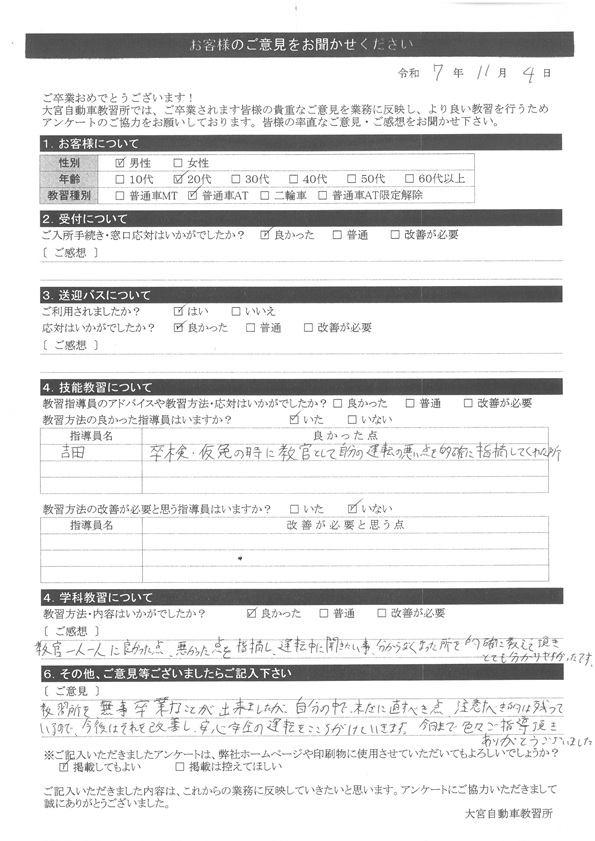 お客様のご意見をお聞かせください
令和 7 年 11 月 4 日
ご卒業おめでとうございます！
大宮自動車教習所では、ご卒業されます皆様の貴重なご意見を業務に反映し、より良い教習を行うため
アンケートのご協力をお願いしております。皆様の率直なご意見・ご感想をお聞かせ下さい。
1. お客様について
性別 ☑ 男性 □ 女性
年齢 □ 10代 ☑ 20代 □ 30代 □ 40代 □ 50代 □ 60代以上
教習種別 □ 普通車MT ☑ 普通車AT □ 二輪車 □ 普通車AT限定解除
2. 受付について
ご入所手続き・窓口応対はいかがでしたか？ ☑ 良かった □ 普通 □ 改善が必要
〔 ご感想 〕
3. 送迎バスについて
ご利用されましたか？ ☑ はい □ いいえ
応対はいかがでしたか？ ☑ 良かった □ 普通 □ 改善が必要
〔 ご感想 〕
4. 技能教習について
教習指導員のアドバイスや教習方法・応対はいかがでしたか？ □ 良かった □ 普通 □ 改善が必要
教習方法の良かった指導員はいますか？ ☑ いた □ いない
指導員名 良かった点
吉田 卒検・仮免の時に教官として自分の運転の悪い点を的確に指摘してくれた所
教習方法の改善が必要と思う指導員はいますか？ □ いた ☑ いない
指導員名 改善が必要と思う点
4. 学科教習について
教習方法・内容はいかがでしたか？ ☑ 良かった □ 普通 □ 改善が必要
〔 ご感想 〕
教官一人一人に良かった点、悪かった点を指摘し、運転中に聞きたい事、分からなくなった所を的確に教えて頂き
とても分かりやすかったです。
6. その他、ご意見等ございましたらご記入下さい
〔 ご意見 〕
教習所を無事卒業することが出来ましたが、自分の中で、未だに直すべき点、注意すべき点は残って
いるので、今後はそれを改善し、安心安全の運転をこころがけていきます。今日まで色々ご指導頂き
ありがとうございました
※ご記入いただきましたアンケートは、弊社ホームページや印刷物に使用させていただいてもよろしいでしょうか？
☑ 掲載してもよい □ 掲載は控えてほしい
ご記入いただきました内容は、これからの業務に反映していきたいと思います。アンケートにご協力いただきまして
誠にありがとうございました。
大宮自動車教習所